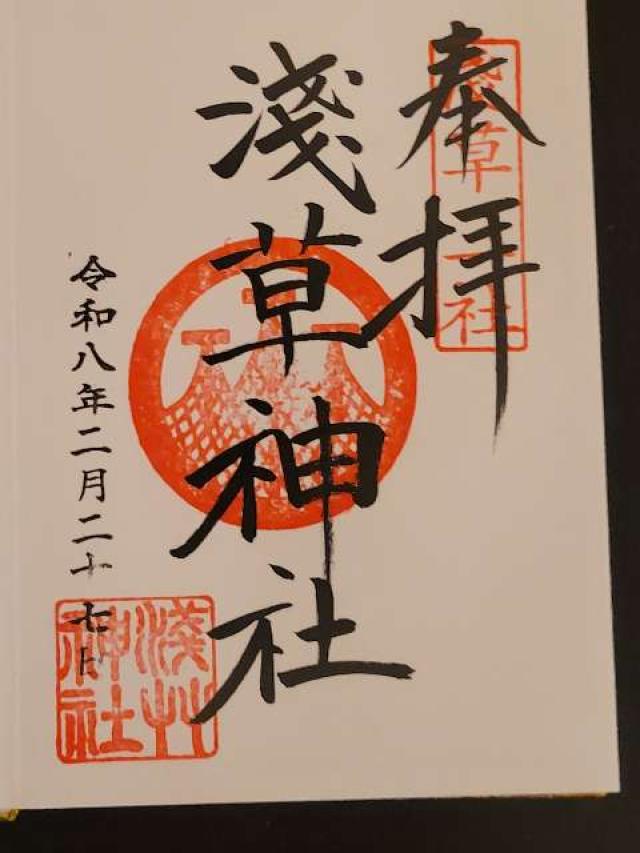 奉拝
草 社
淺草神社
令和八年二月二十七日
淺艸
神社